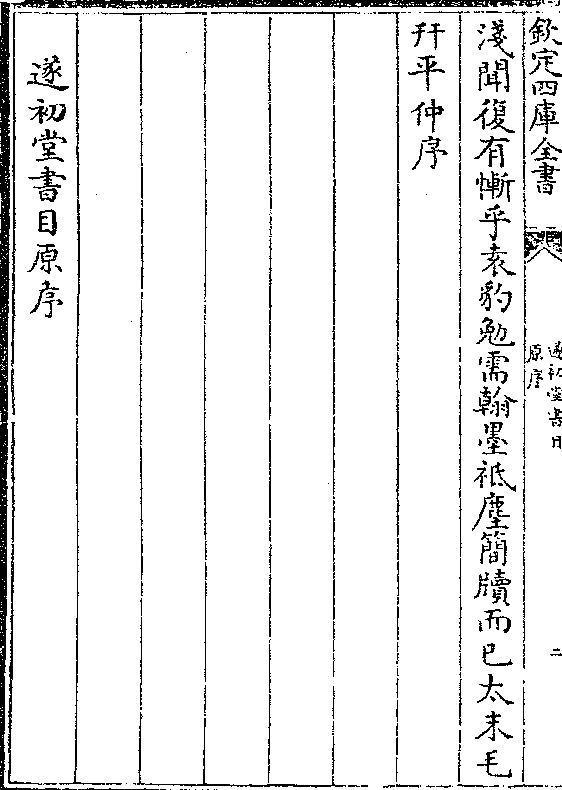 欽定四庫全書
遂初堂書目
原序
二
淺聞復有慚乎袁豹勉需翰墨祗塵簡牘而已太末毛
幵平仲序
遂初堂書目原序